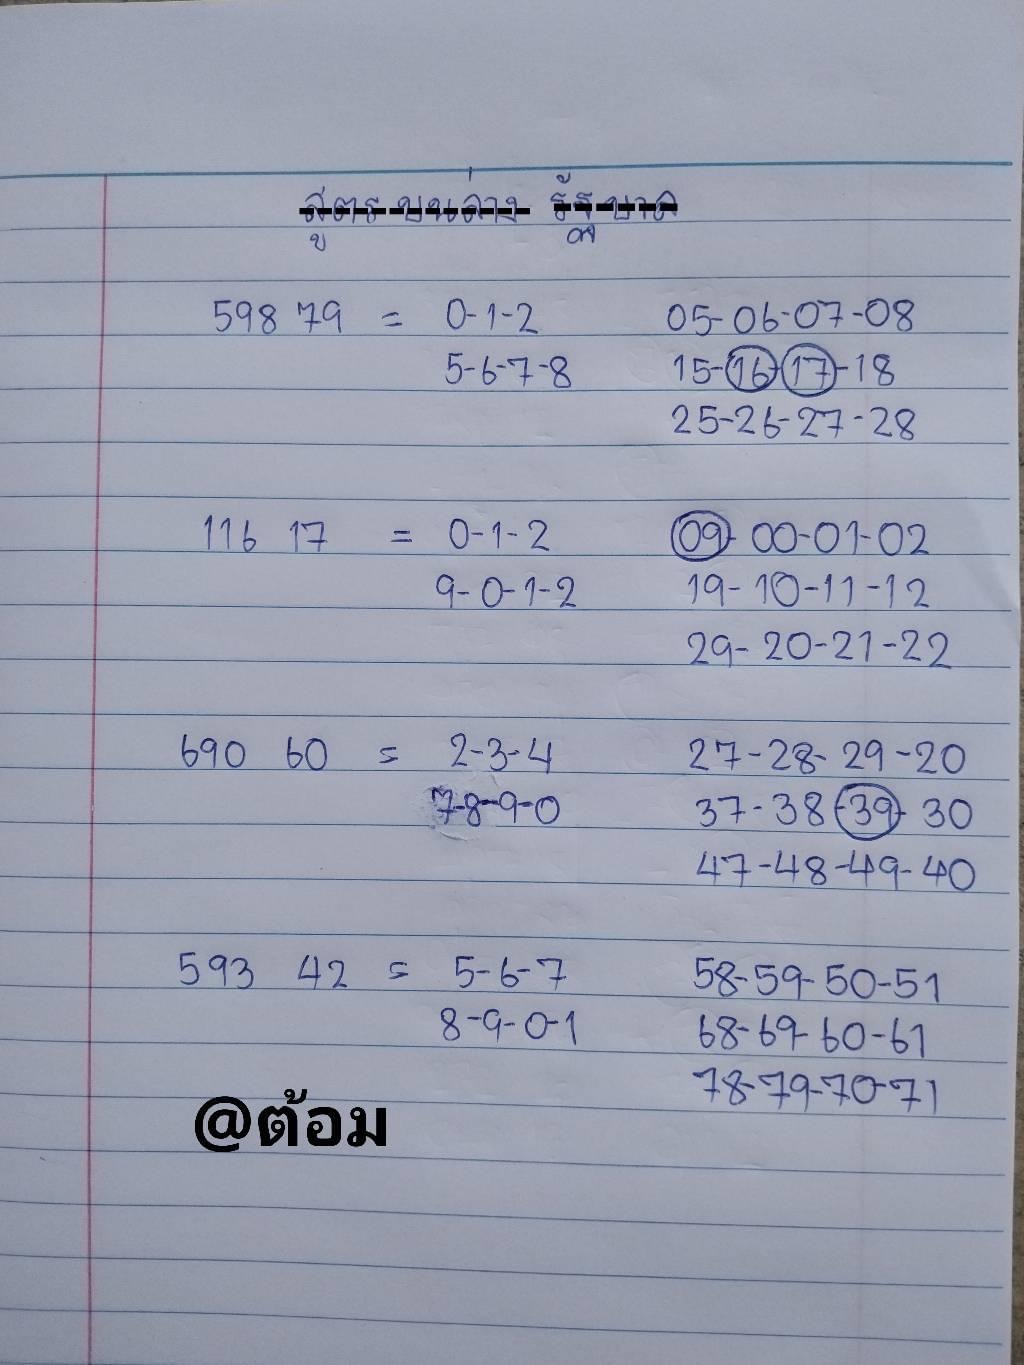 สูตรบนล่าง รัฐบาล
598 79 = 0-1-2 05-06-07-08
5-6-7-8 15-16-17-18
25-26-27-28
116 17 = 0-1-2 09-00-01-02
9-0-1-2 19-10-11-12
29-20-21-22
690 60 = 2-3-4 27-28-29-20
7-8-9-0 37-38-39-30
47-48-49-40
593 42 = 5-6-7 58-59-50-51
8-9-0-1 68-69-60-61
78-79-70-71
@ต้อม